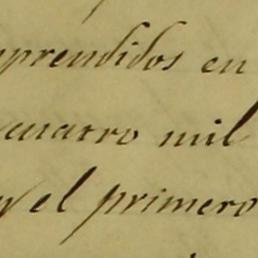 mprendidos en
cuatro mil
y el primero